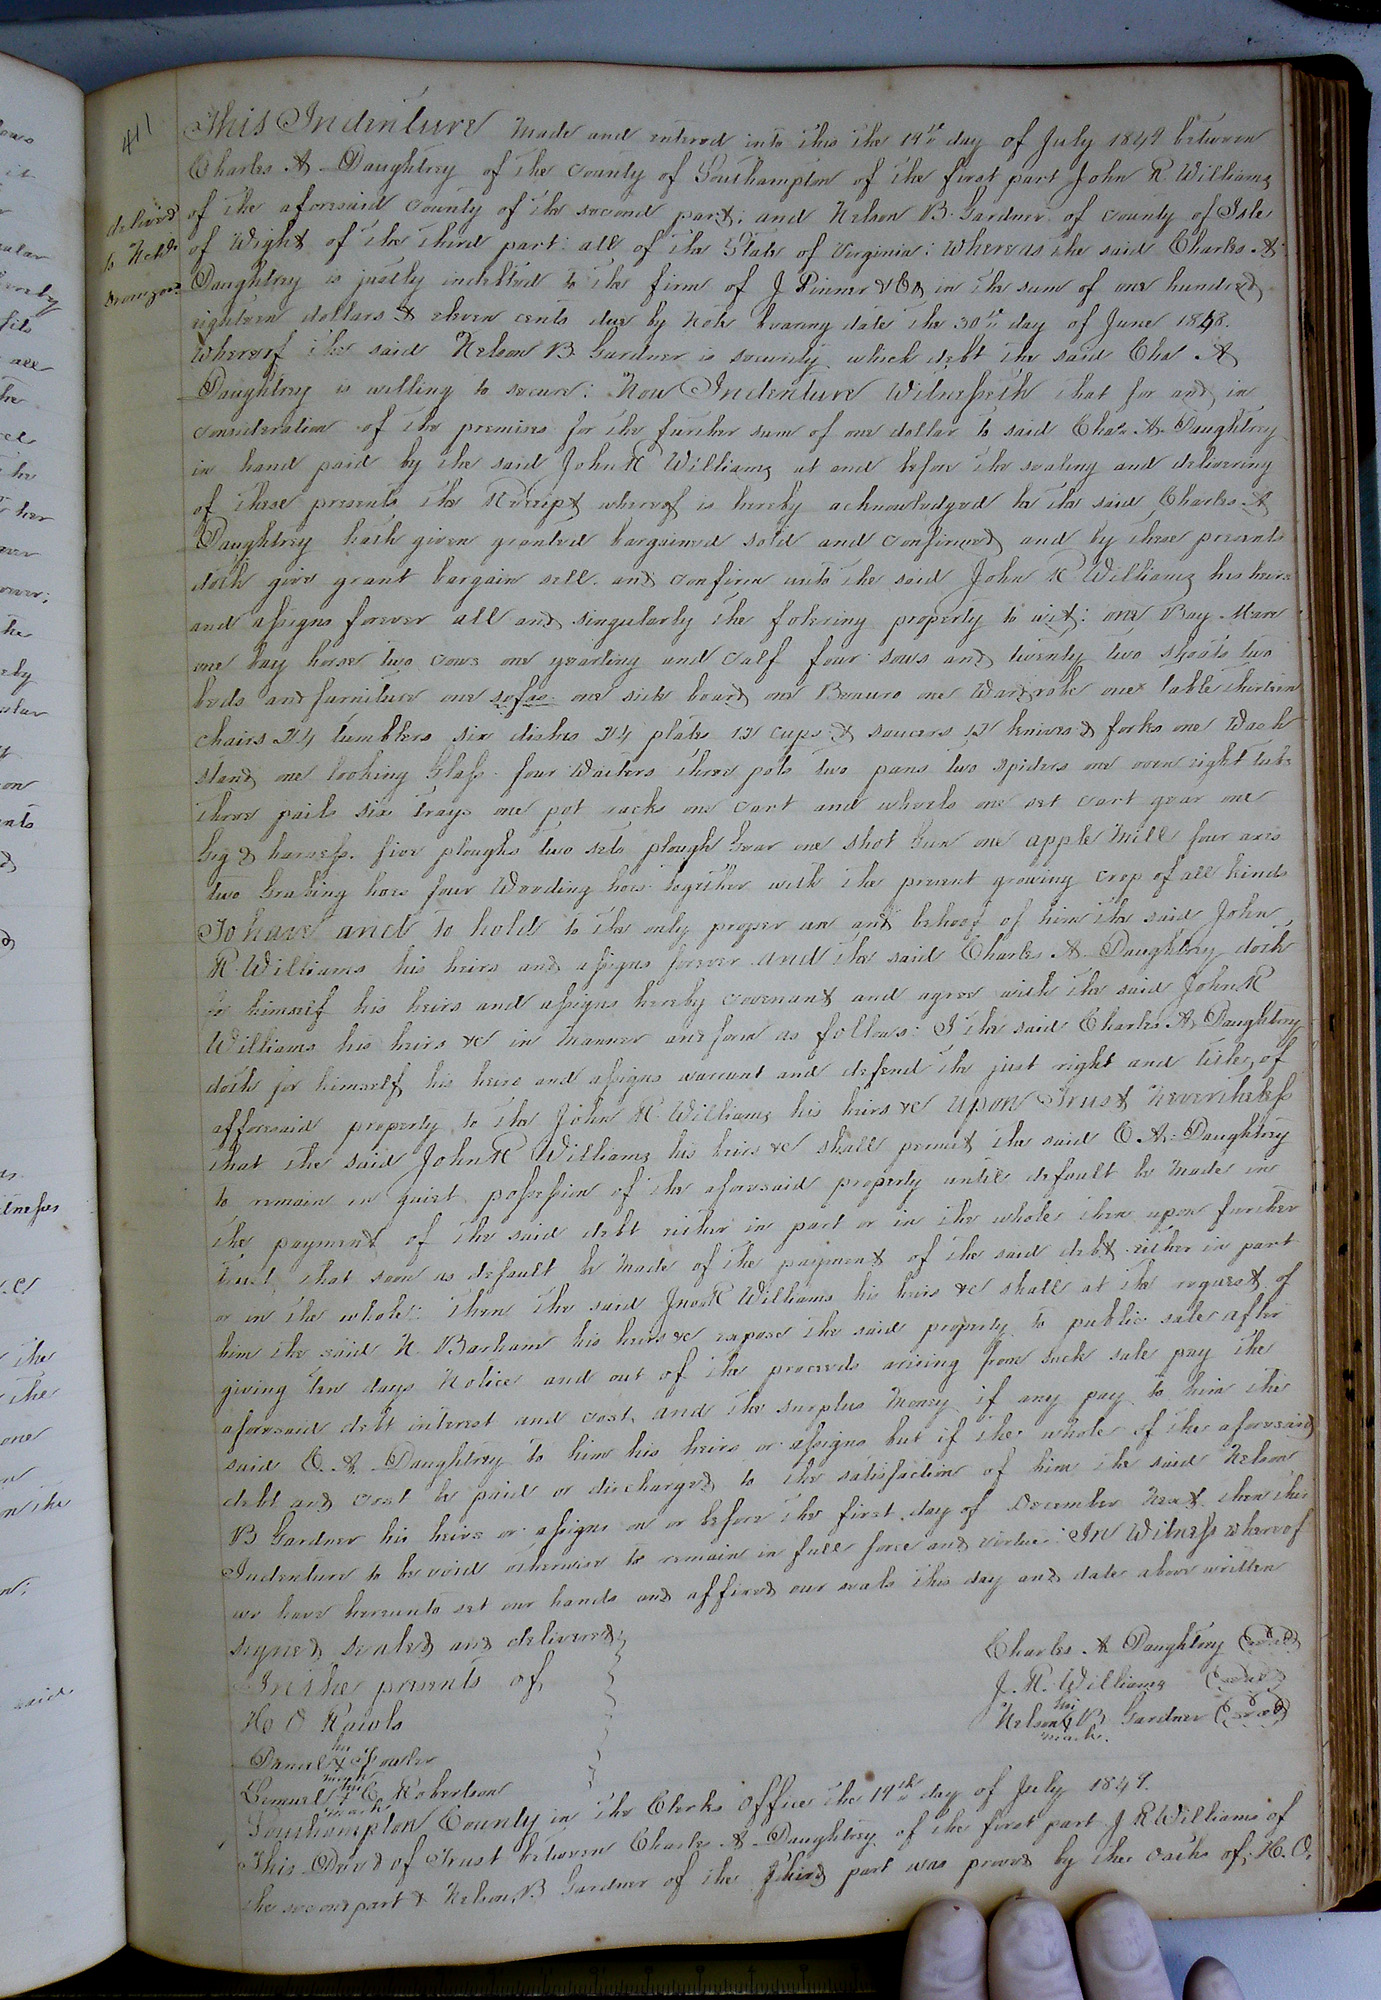 411
This Indenture made and entered into this the 19th day of July 1849 between
Charles A Daughtrey of the county of Southampton of the first part John R. Williams
of the aforesaid county of the second part; and Nelson B. Gardner of county of Isle
of Wight of the third part: all of the State of Virginia: Whereas the said Charles A
Daughtrey is justly indebted to the firm of J Pinner & Co in the sum of one hundred
eighteen dollars & eleven cents due by note bearing date the 30th day of June 1848.
Whereof the said Nelson B. Gardner is security which debt the said Chas A
Daughtrey is willing to secure: Now Indenture Witnesseth that for and in
consideration of the premises for the further sum of one dollar to said Chas A. Daughtrey
in hand paid by the said John R Williams at and before the sealing and delivering
of these presents, the Receipt whereof is hereby acknowledged he the said Charles A
Daughtrey hath given granted bargained sold and confirmed and by these presents
doth give grant bargain sell and confirm unto the said John R Williams his heirs
and assigns forever all and singularly the foloring property to wit: one Bay Mare
one bay horse two cows one yearling and calf four sows and twenty two shoats two
beds and furniture one sofas one side board one Beauro one Wardrobe one table thirteen
chairs 24 tumblers six dishes 24 plates 12 cups & saucers 12 knives & forks one Wash
stand one looking Glass four Waiters three pots two pans two spiders one oven eight tubs
three pails six trays one pot racks one cart and wheels one set cart gear one
Gig & harness. five ploughs two sets plough Gear one shot Gun one apple Mill four axes
two Grabing hoes four Weeding hoes together with the present growing crop of all kinds
To have and to hold to the only proper use and behoof of him the said John
R. Williams his heirs and assigns forever and the said Charles A. Daughtrey doth
for himself his heirs and assigns hereby covenant and agree with the said John R
Williams his heirs &c in manner and form as follows: I the said Charles A Daughtrey
doth for himself his heirs and assigns warrant and defend the just right and title of
afforesaid property to the John R. Williams his heirs &c upon Trust Nevertheless
that the said John R Williams his heirs &c shall permit the said C A. Daughtrey
to remain in quiet possession of the aforesaid property until default be made in
the payment of the said debt either in part or in the whole then upon further
trust that soon as default be made of the payment of the said debt either in part
or in the whole: Then the said Jno R Williams his heirs &c shall at the request of
him the said N Barham his heirs &c expose the said property to public sale after
giving ten days Notice and out of the proceeds arising from such sale pay the
aforesaid debt interest and cost and the surplus money if any pay to him the
said C. A. Daughtrey to him his heirs or assigns but if the whole of the aforesaid
debt and cost be paid or discharged to the satisfaction of him the said Nelson
B Gardner his heirs or assigns on or before the first day of December Next then this
Indenture to be void otherwise to remain in full force and virtue: In Witness whereof
we have hereunto set our hands and affixed our seals this day and date above written
signed sealed and delivered
In the presents of
H O Rawls
Daniel his X mark Fowler
Lemuel his X mark C Robertson
Charles A Daughtrey (seal)
J. R. Williams (seal)
Nelson his X mark B Gardner (seal)
Southampton County in the Clerks Office the 19th day of July 1849.
This Deed of Trust between Charles A Daughtrey of the first part J R Williams of
the second part & Nelson B Gardner of the third part was proved by the oaths of H. O.